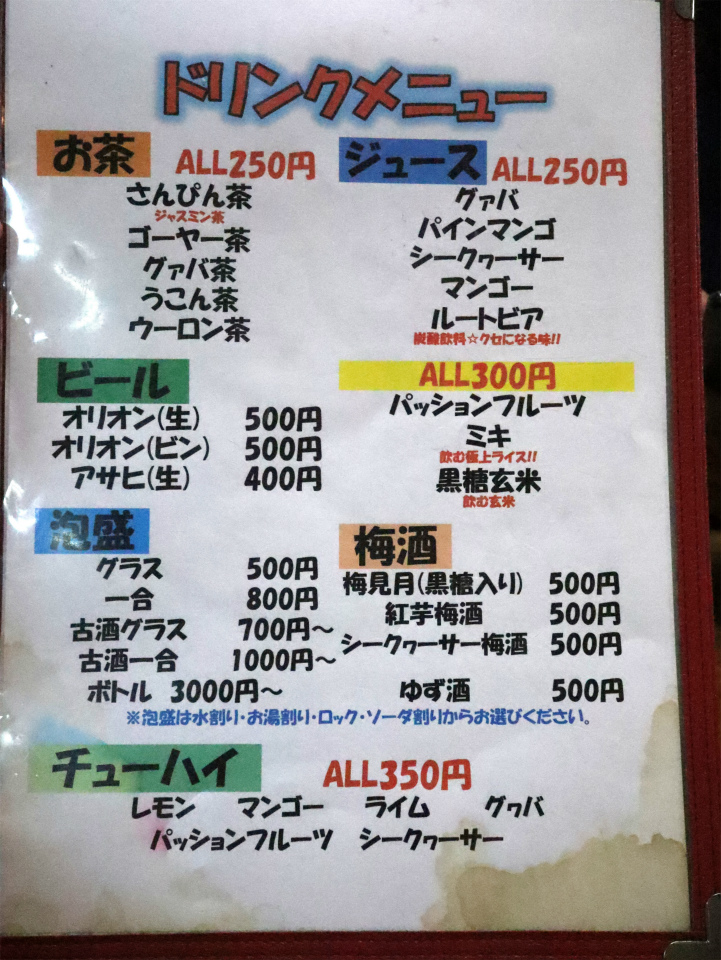 ドリンクメニュー
お茶 ALL250円
さんぴん茶
ジャスミン茶
ゴーヤー茶
グァバ茶
うこん茶
ウーロン茶
ジュース ALL250円
グァバ
パインマンゴ
シークヮーサー
マンゴー
ルートビア
炭酸飲料☆クセになる味!!
ALL300円
パッションフルーツ
ミキ
飲む極上ライス!!
黒糖玄米
飲む玄米
ビール
オリオン(生) 500円
オリオン(ビン) 500円
アサヒ(生) 400円
泡盛
グラス 500円
一合 800円
古酒グラス 700円～
古酒一合 1000円～
ボトル 3000円～
梅酒
梅見月(黒糖入り) 500円
紅芋梅酒 500円
シークヮーサー梅酒 500円
ゆず酒 500円
※泡盛は水割り・お湯割り・ロック・ソーダ割りからお選びください。
チューハイ ALL350円
レモン マンゴー ライム グヮバ
パッションフルーツ シークヮーサー